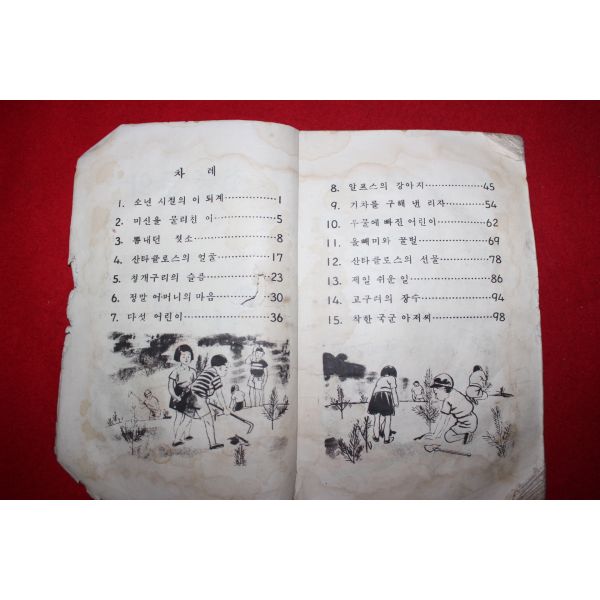 차 례
1. 소년 시절의 이 퇴계 1
2. 미신을 물리친 이 5
3. 뽐내던 젓소 8
4. 산타클로스의 얼굴 17
5. 청개구리의 슬픔 23
6. 정말 어머니의 마음 30
7. 다섯 어린이 36
8. 알프스의 강아지 45
9. 기차를 구해 낸 리자 54
10. 우물에 빠진 어린이 62
11. 올빼미와 꿀벌 69
12. 산타클로스의 선물 78
13. 제일 쉬운 일 86
14. 고구려의 장수 94
15. 착한 국군 아저씨 98